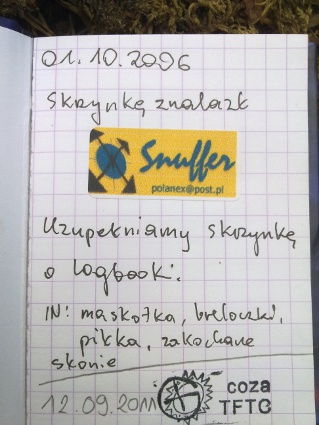 01.10.2006
Skrzynkę znalazł
Snuffer
polanex@post.pl
Uzupełniamy skrzynkę
o logbooki.
IN: maskotka, breloczki,
piłka, zakochane
słonie
12.09.2011
coza
TFTC